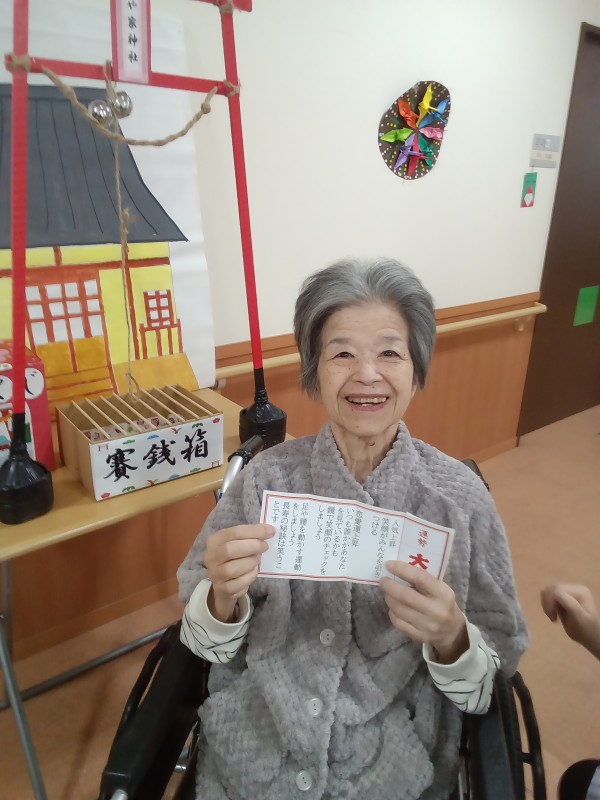 家神社
賽銭箱
運勢
大
人気上昇
笑顔がみんなを引き
つける
恋愛運上昇
いつも誰かがあなた
を見ているかも
鏡で笑顔のチェックを
しましょう
足や腰を動かす運動
をしましょう
長寿の秘訣は笑うこ
とです